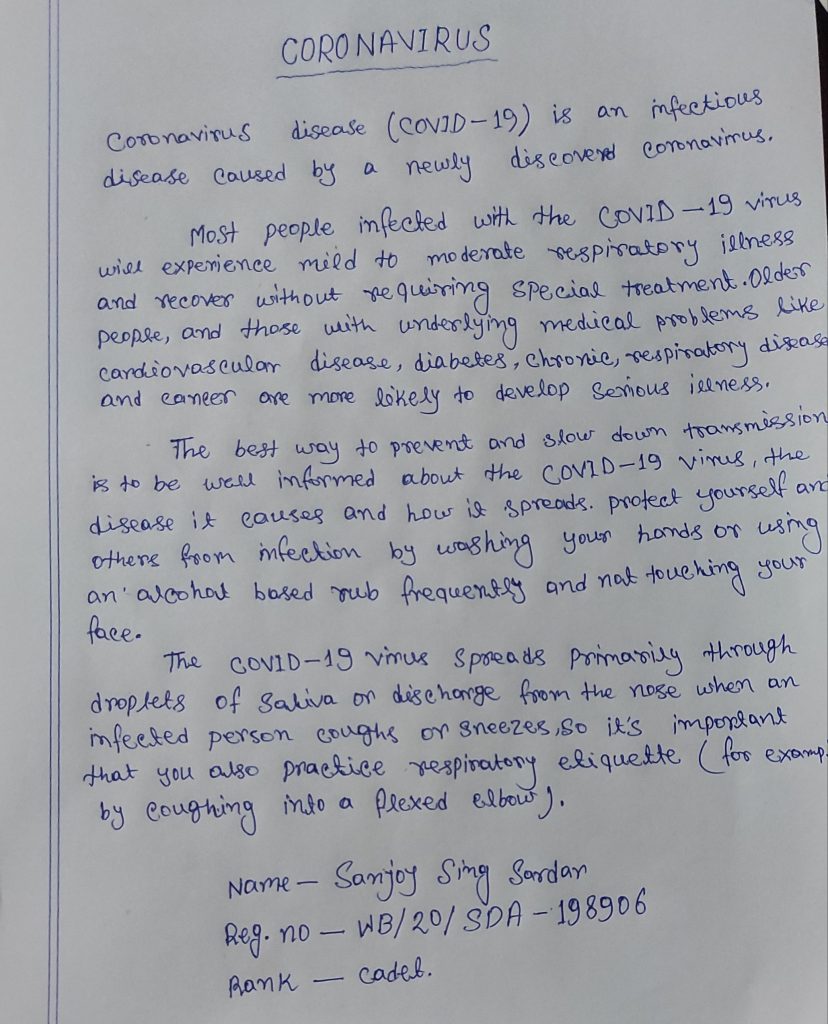 CORONAVIRUS
Coronavirus disease (COVID-19) is an infectious
disease caused by a newly discovered coronavirus.
Most people infected with the COVID-19 virus
will experience mild to moderate respiratory illness
and recover without requiring special treatment. Older
people, and those with underlying medical problems like
cardiovascular disease, diabetes, chronic, respiratory disease
and cancer are more likely to develop serious illness.
The best way to prevent and slow down transmission
is to be well informed about the COVID-19 virus, the
disease it causes and how it spreads. protect yourself and
others from infection by washing your hands or using
an alcohol based rub frequently and not touching your
face.
The COVID-19 virus spreads primarily through
droplets of saliva or discharge from the nose when an
infected person coughs or sneezes, so it's important
that you also practice respiratory etiquette (for examp
by coughing into a flexed elbow).
Name - Sanjoy Sing Sardar
Reg. no - WB/20/SDA - 198906
Rank - cadet.